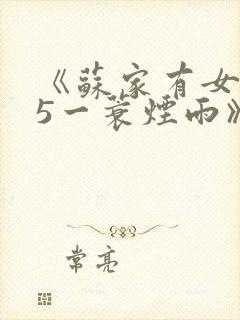 《蘇家有女
5一蓑煙雨》
常亮